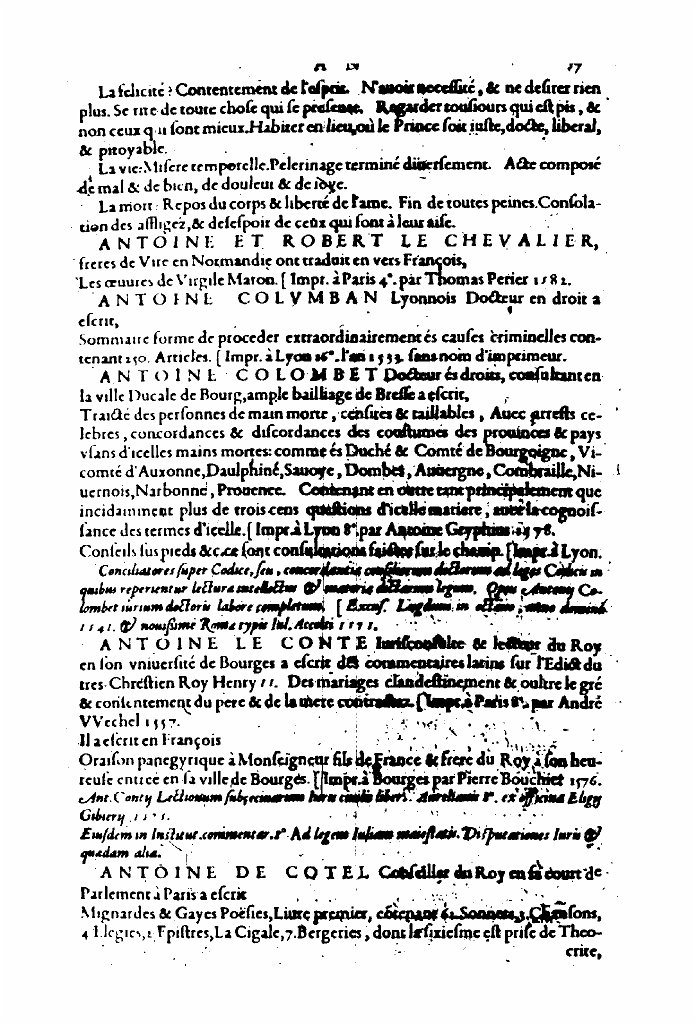 A N 17
La felicité? Contentement de l'esprit. N'auoir necessité, & ne desirer rien
plus. Se rire de toute chose qui se presente. Regarder tousiours qui est pis, &
non ceux qui sont mieux. Habiter en lieu, où le Prince soit iuste, docte, liberal,
& pitoyable.
La vie: Misere temporelle. Pelerinage terminé diuersement. Acte composé
de mal & de bien, de douleur & de ioye.
La mort: Repos du corps & liberté de l'ame. Fin de toutes peines. Consola-
tion des affligez, & desespoir de ceux qui sont à leur aise.
ANTOINE ET ROBERT LE CHEVALIER,
freres de Vire en Normandie ont traduit en vers François,
Les œuures de Virgile Maron. [Impr. à Paris 4°. par Thomas Perier 1582.
ANTOINE COLVMBAN Lyonnois Docteur en droit a
escrit,
Sommaire forme de proceder extraordinairement és causes criminelles con-
tenant 250. Articles. [Impr. à Lyon 16°. l'an 1533. sans nom d'imprimeur.
ANTOINE COLOMBET Docteur és droits, consultant en
la ville Ducale de Bourg, ample bailliage de Bresse a escrit,
Traicté des personnes de main morte, censites & taillables, Auec arrests ce-
lebres, concordances & discordances des coustumes des prouinces & pays
vsans d'icelles mains mortes: comme és Duché & Comté de Bourgoigne, Vi-
comté d'Auxonne, Daulphiné, Sauoye, Dombes, Auuergne, Combraille, Ni-
uernois, Narbonne, Prouence. Contenant en outre tant principalement que
incidamment plus de trois cens questions d'icelle matiere, auec la cognois-
sance des termes d'icelle. [Impr. à Lyon 8°. par Antoine Gryphius 1578.
Conseils sus pieds &c. ce sont consultations faictes sur le champ. [Impr. à Lyon.
Conciliatores super Codice, seu, concordantia consiliorum doctorum ad leges Codicis in
quibus reperientur lectura intellectus & materia dictarum legum. Opus Antony Co-
lombet iurium doctoris labore completum. [Excus. Lugduni in octauo, anno domini
1541. & nouissime Roma typis Iul. Accolti 1571.
ANTOINE LE CONTE Iurisconsulte & lecteur du Roy
en son vniuersité de Bourges a escrit des commentaires latins sur l'Edict du
tres-Chrestien Roy Henry 11. Des mariages clandestinement & oultre le gré
& consentement du pere & de la mere contractez. [Impr. à Paris 8°. par André
VVechel 1557.
Il a escrit en François
Oraison panegyrique à Monseigneur fils de France & frere du Roy à son heu-
reuse entree en sa ville de Bourges. [Impr. à Bourges par Pierre Bouchier 1576.
Ant. Conty Lectionum subsecinarum Iuris ciuilis libri. Aureliani 8°. ex officina Eligy
Gibiery
Eiusdem in Institut. commentar. 8° Ad legem Iuliam maiestatis. Disputationes Iuris &
quædam alia.
ANTOINE DE COTEL Conseiller du Roy en sa court de
Parlement à Paris a escrit
Mignardes & Gayes Poësies, Liure premier, côtenant Sonnets, Chansons,
4 Elegies, 2 Epistres, La Cigale, 7. Bergeries, dont la sixiesme est prise de Theo-
crite,